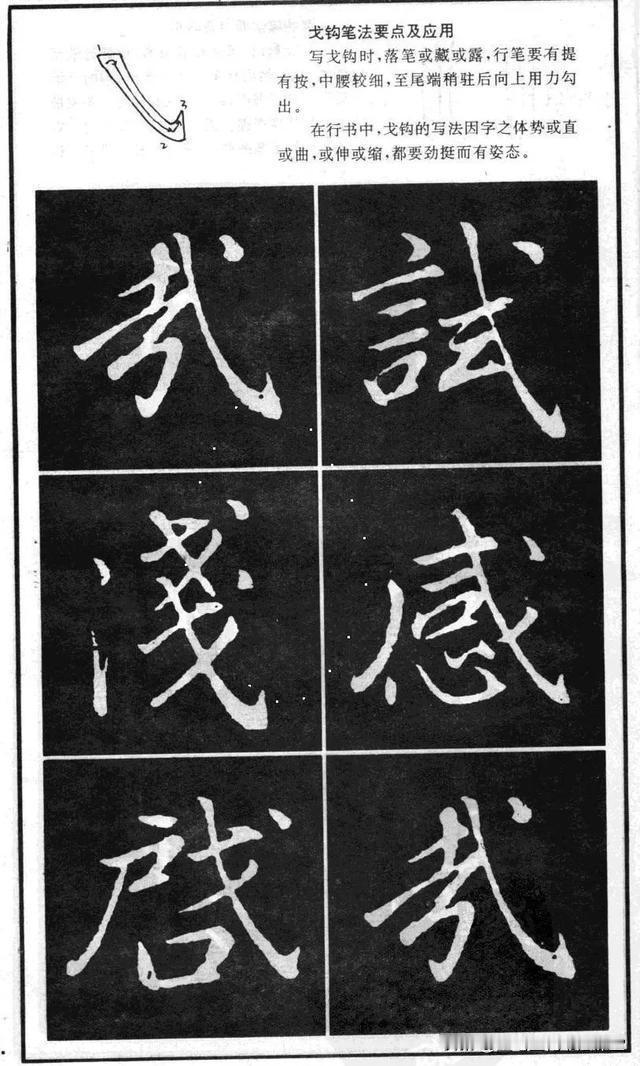 戈钩笔法要点及应用
写戈钩时，落笔或藏或露，行笔要有提
有按，中腰较细，至尾端稍驻后向上用力勾
出。
在行书中，戈钩的写法因字之体势或直
或曲，或伸或缩，都要劲挺而有姿态。
1
3
2
哉 試
淺 感
啓 哉